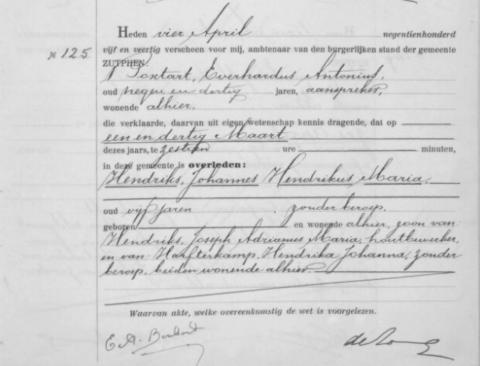 Heden vier April negentienhonderd
* 125 vijf en veertig verscheen voor mij, ambtenaar van den burgerlijken stand der gemeente
ZUTPHEN:
Everhardus Antonius,
oud negen en dertig jaren, aanspreker,
wonende alhier,
die verklaarde, daarvan uit eigen wetenschap kennis dragende, dat op
een en dertig Maart
dezes jaars, te zestien ure minuten,
in deze gemeente is overleden:
Hendriks, Johannes Hendrikus Maria,
oud vijf jaren zonder beroep,
geboren en wonende alhier, zoon van
Hendriks, Joseph Adrianus Maria, houtbewerker,
en van Harfterkamp, Hendrika Johanna, zonder
beroep, beiden wonende alhier.
Waarvan akte, welke overeenkomstig de wet is voorgelezen.
E.A. de Jong